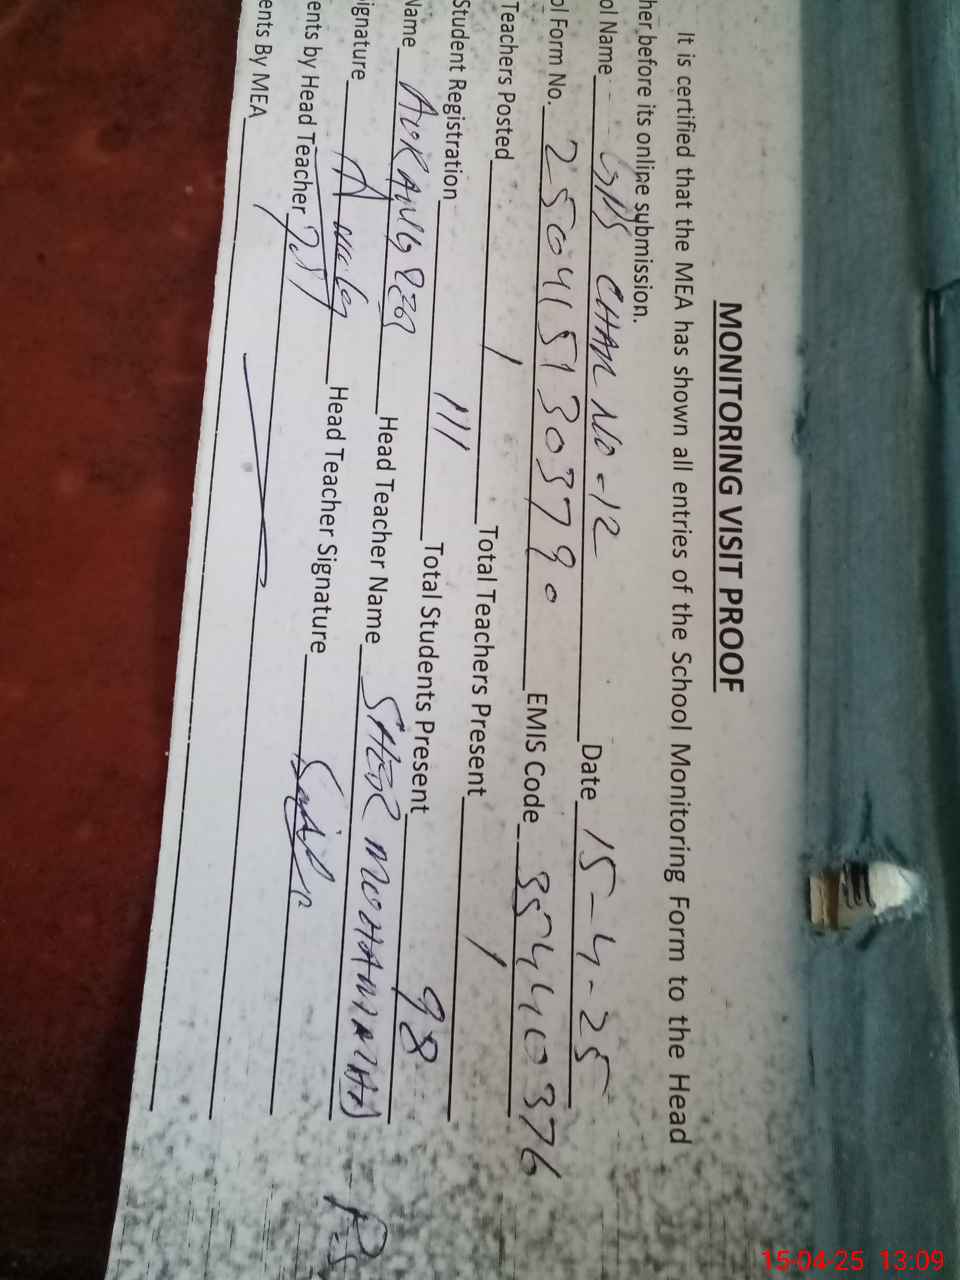 MONITORING VISIT PROOF
It is certified that the MEA has shown all entries of the School Monitoring Form to the Head
her before its online submission.
ol Name GPS CHAK NO-12 Date 15-4-25
ol Form No. 2504151303790 EMIS Code 35440376
Teachers Posted 1 Total Teachers Present 1
Student Registration 111 Total Students Present 98
Name AURANGZEB Head Teacher Name SHER MUHAMMAD
ignature Head Teacher Signature
ents by Head Teacher
ents By MEA
15-04-25 13:09